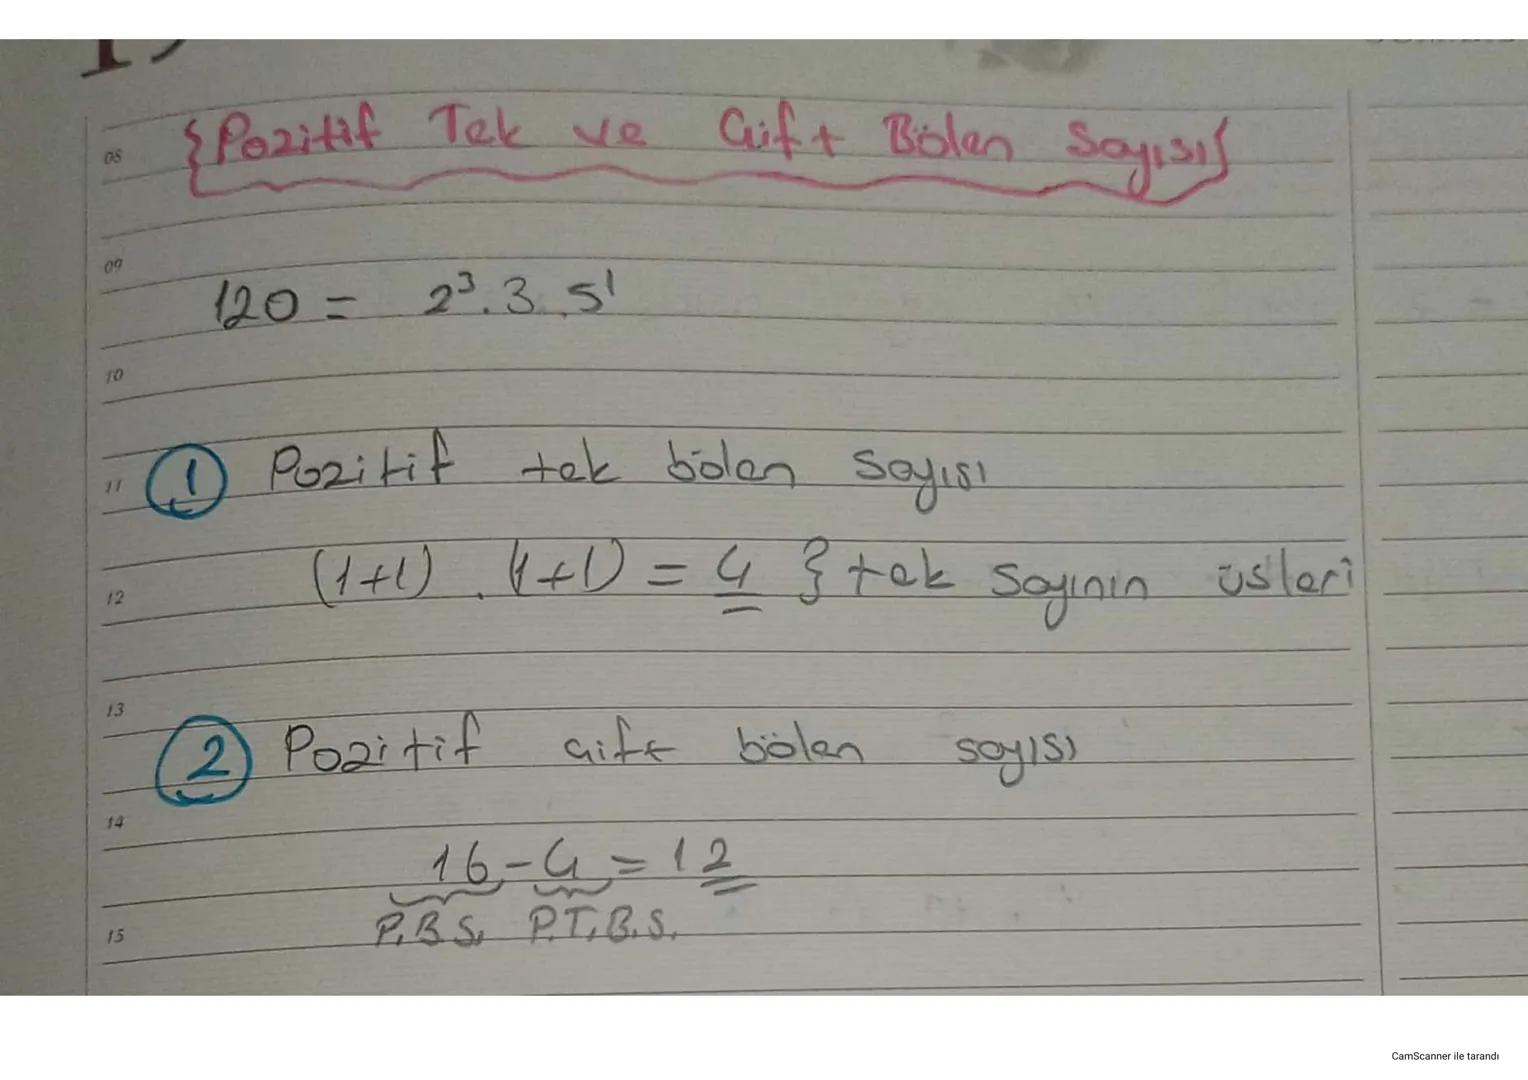 {Pozitif Tek ve Çift Bölen Sayısı}
08
09
120 = 2³.3.5¹
10
11
① Pozitif tek bölen sayısı
12
(1+1).(1+1) = 4 } tek sayının üsleri
13
② Pozitif çift bölen sayısı
14
16-4=12
15
P.B.S. P.T.B.S.
CamScanner ile tarandı